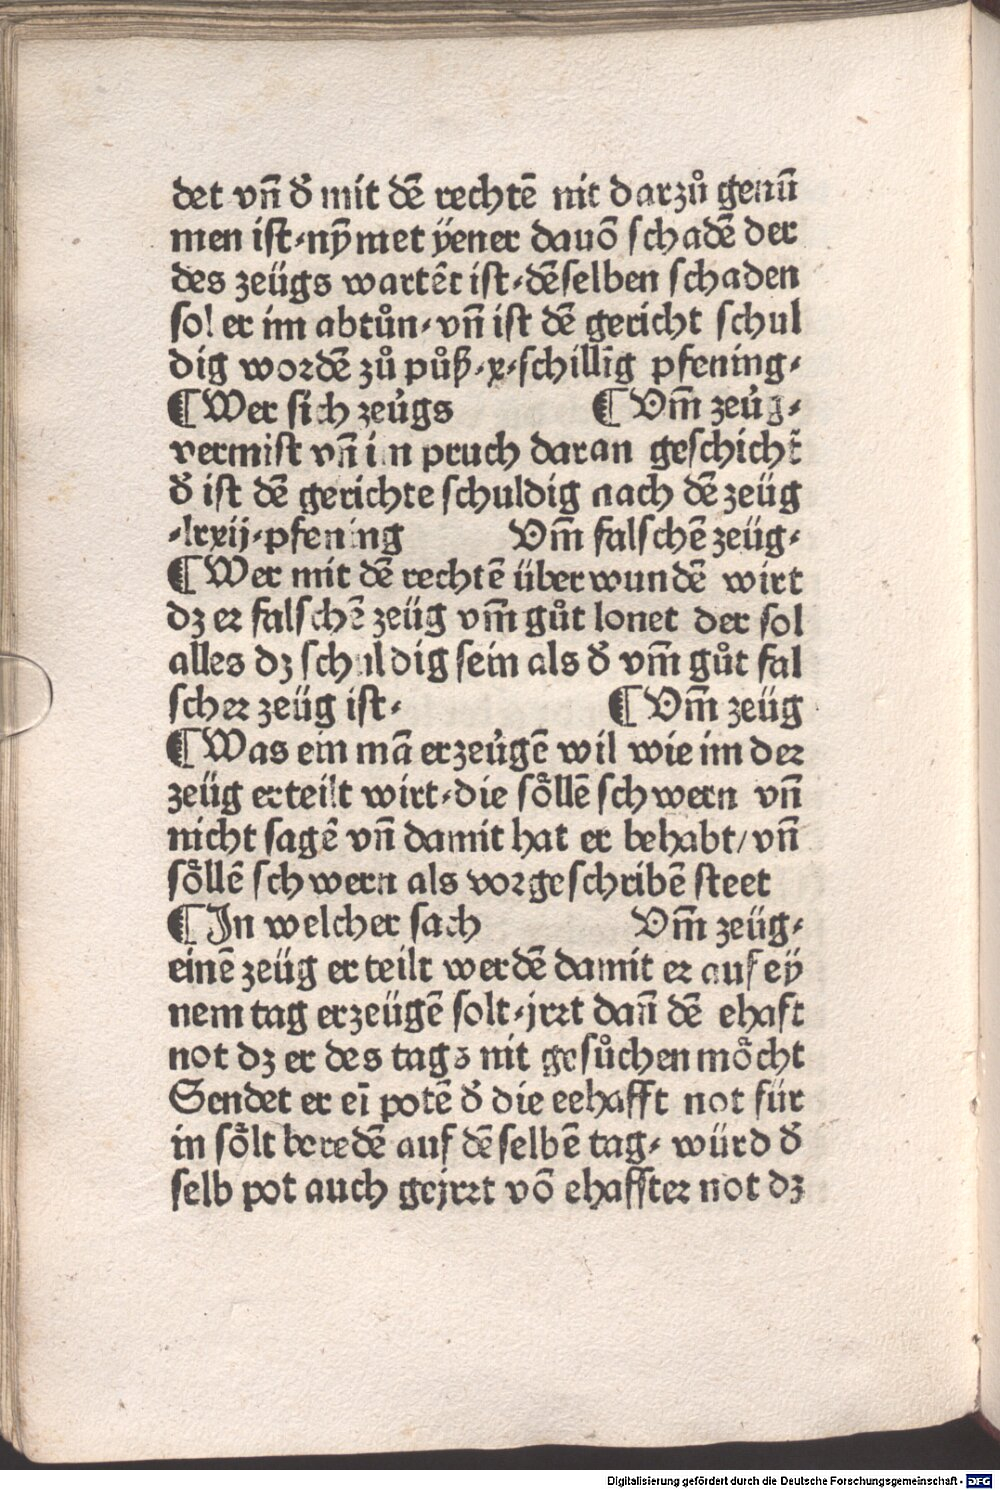 det vn̄ đ mit dē rechtē nit darzů genū
men ist·nȳmet ÿener dauō schadē der
des zeügs wartēt ist·dēselben schaden
sol er im abtůn·vn̄ ist dē gericht schul
dig wordē zů půß·x·schillig pfening·
¶ Wer sich zeügs ¶ Vm̄ zeüg·
vermist vn̄ im pruch daran geschicht
đ ist dē gerichte schuldig nach dē zeüg
·lxxij·pfening Vm̄ falschē zeüg·
¶ Wer mit dē rechtē überwundē wirt
dz er falschē zeüg vm̄ gůt lonet der sol
alles dz schuldig sein als đ vm̄ gůt fal
scher zeüg ist· ¶ Vm̄ zeüg
¶ Was ein mā erzeügē wil wie im der
zeüg erteilt wirt·die sőllē schwern vn̄
nicht sagē vn̄ damit hat er behabt/vn̄
sőllē schwern als vorgeschribē steet
¶ In welcher sach Vm̄ zeüg·
einē zeüg erteilt werdē damit er auf eÿ
nem tag erzeügē solt·jrrt dan̄ dē ehaft
not dz er des tags nit gesůchen mőcht
Sendet er eī potē đ die eehafft not für
in sőlt beredē auf dē selbē tag· würd đ
selb pot auch gejrrt vō ehaffter not dz
Digitalisierung gefördert durch die Deutsche Forschungsgemeinschaft - DFG